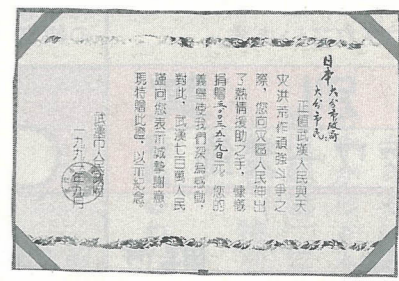 日本大分市政府
大分市民
正值武漢人民與天
灾洪荒作頑強斗爭之
際，您向灾區人民伸出
了熱情援助之手，慷慨
捐贈日元，您的
義舉使我們深為感動，
對此，武漢七百萬人民
謹向您表示誠摯謝意，
現特贈此證，以示紀念
武漢市人民政府
一九九一年九月